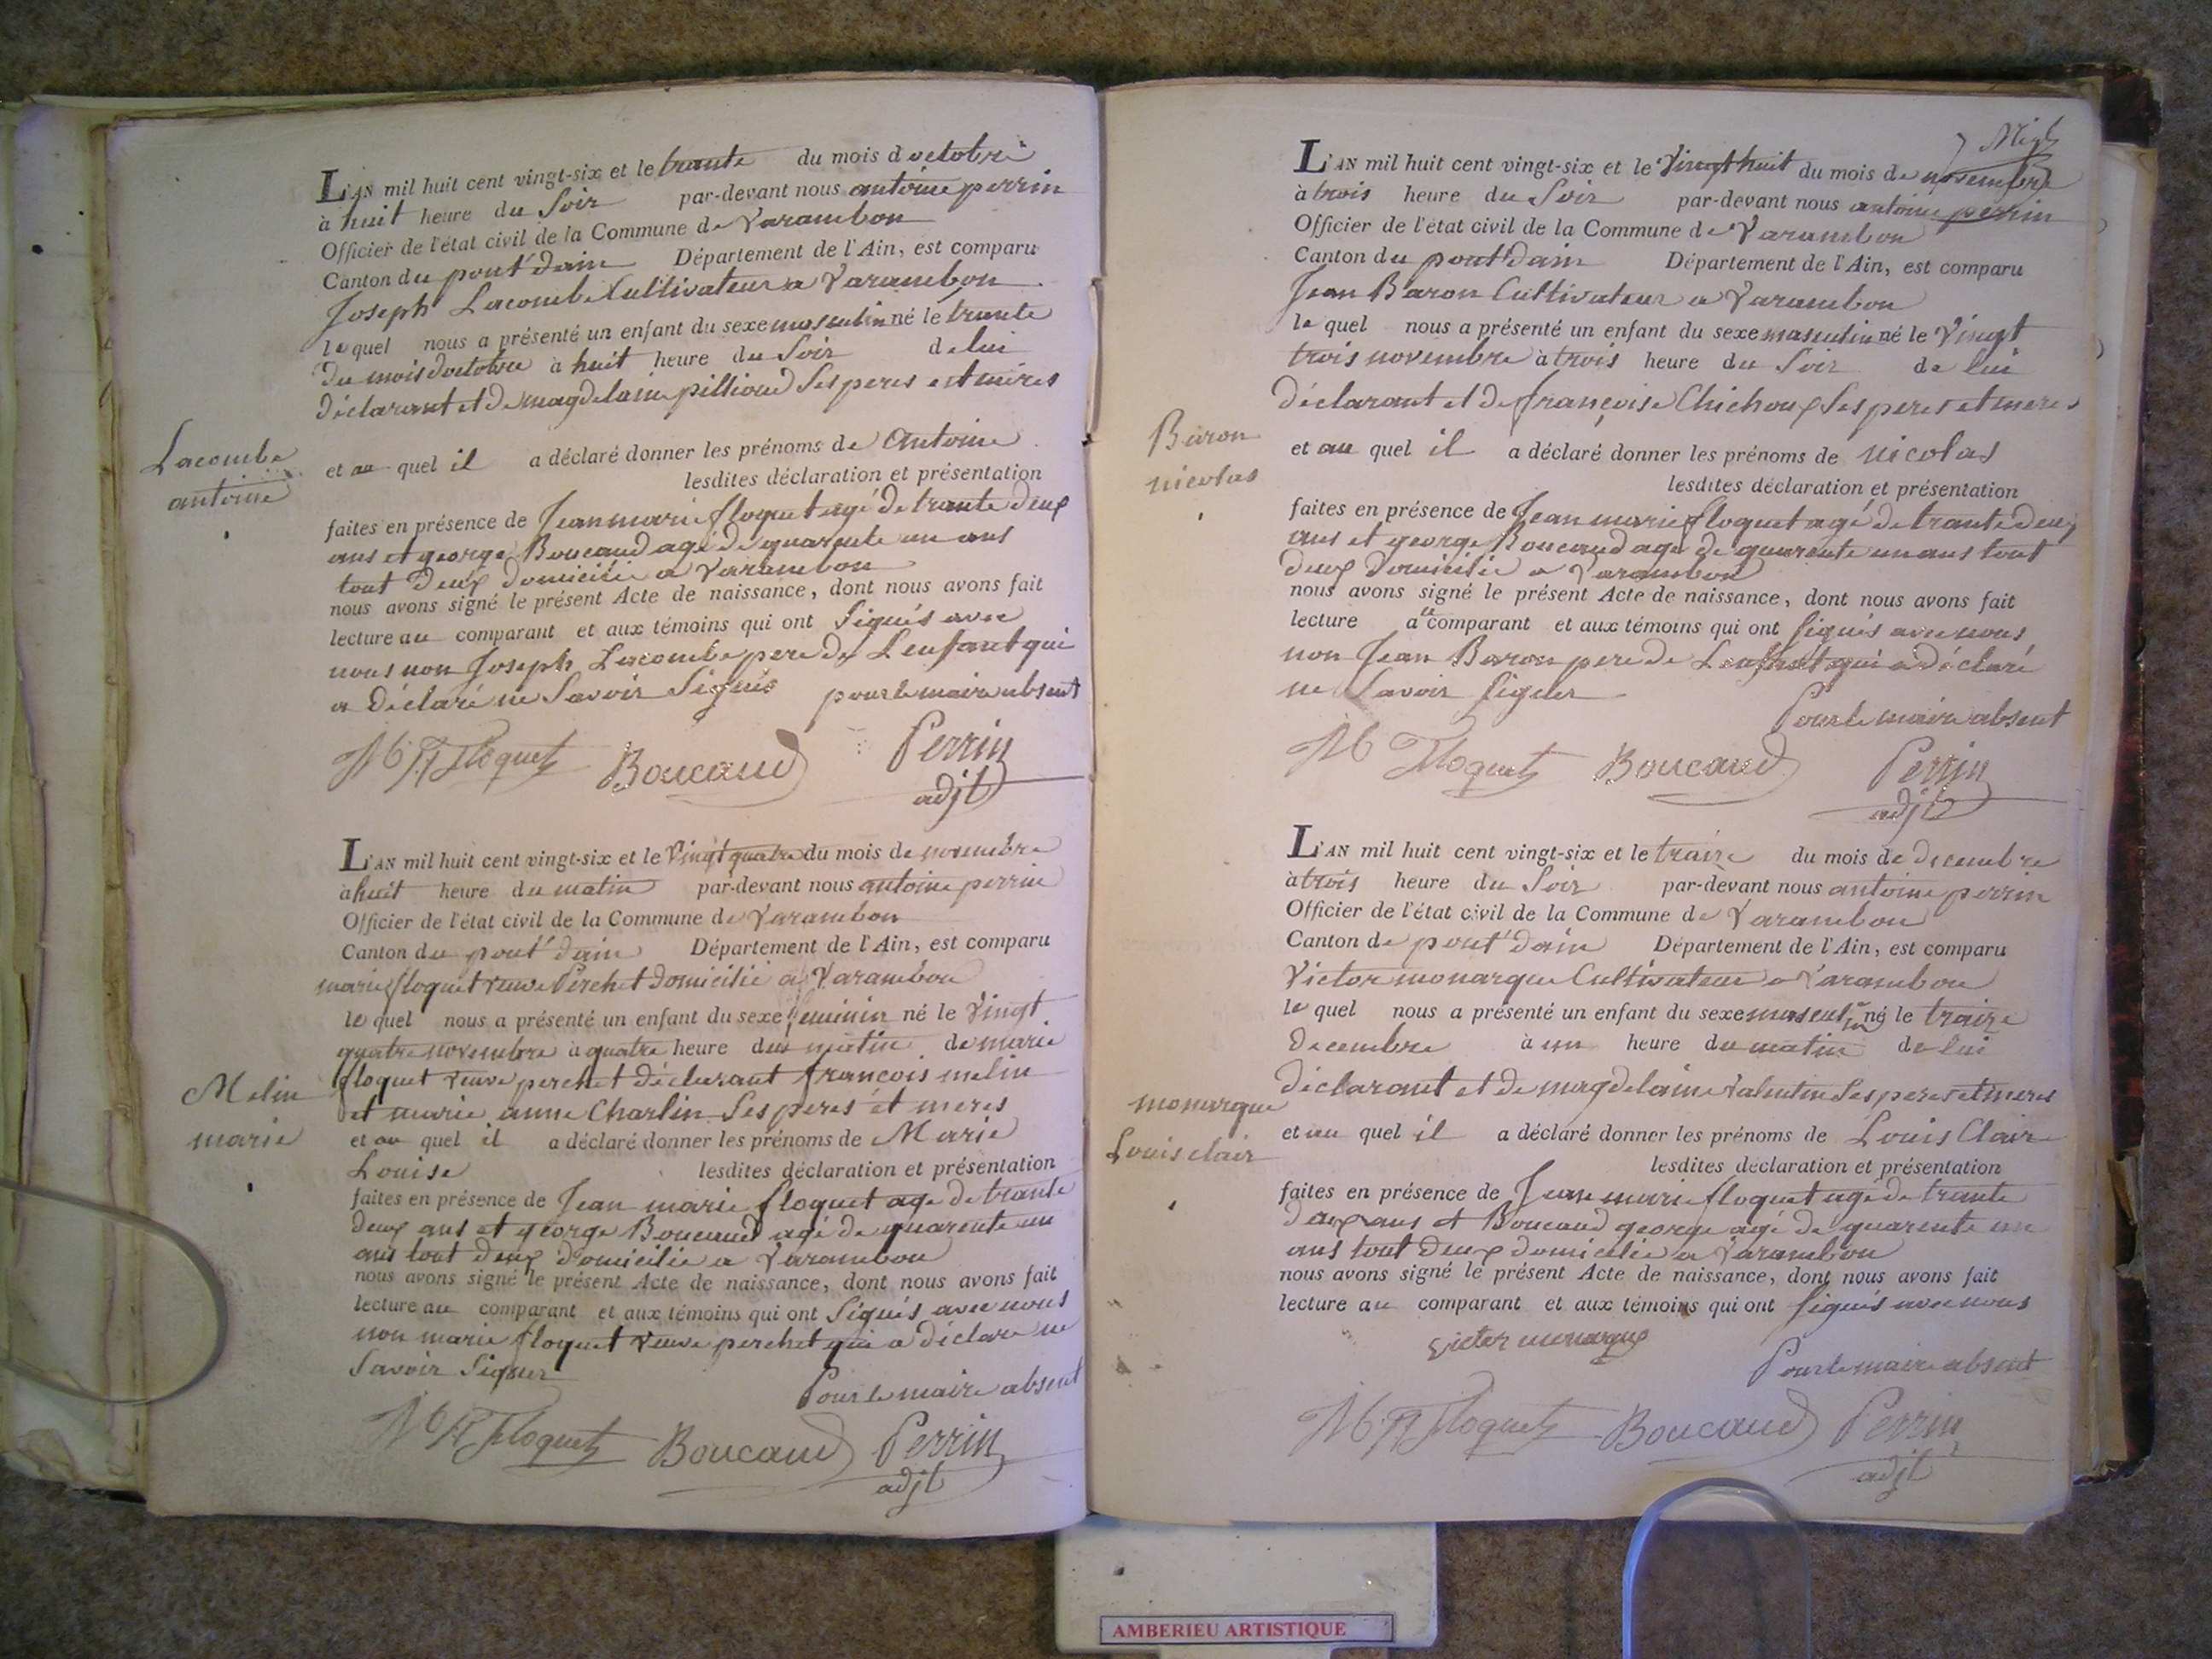 L'AN mil huit cent vingt-six et le trante du mois d octobre
à huit heure du Soir par-devant nous antoine perrin
Officier de l'état civil de la Commune de Varambon
Canton du pont dain Département de l'Ain, est comparu
Joseph Lacombe Cultivateur a Varambon
le quel nous a présenté un enfant du sexe masculin né le trante
du mois doctobre à huit heure du Soir de lui
déclarant et de magdelaine pillioud Ses peres et meres
Lacombe
antoine
et au quel il a déclaré donner les prénoms de Antoine
lesdites déclaration et présentation
faites en présence de Jean marie floquet agé de trante deux
ans et george Boucaud agé de quarente un ans
tout deux domicilié a Varambon
nous avons signé le présent Acte de naissance, dont nous avons fait
lecture au comparant et aux témoins qui ont Signés avec
nous non Joseph Lacombe pere de Lenfant qui
a déclaré ne Savoir Signés pour le maire absent
Floquet Boucaud Perrin
adjt
L'AN mil huit cent vingt-six et le Vingt quatre du mois de novembre
à huit heure du matin par-devant nous antoine perrin
Officier de l'état civil de la Commune de Varambon
Canton du pont dain Département de l'Ain, est comparu
marie floquet veuve Perchet domicilié a Varambon
le quel nous a présenté un enfant du sexe feminin né le Vingt
quatre novembre à quatre heure du matin de marie
floquet veuve perchet déclarant françois melin
et marie anne Charlin Ses peres et meres
Melin
marie
et au quel il a déclaré donner les prénoms de Marie
Louise lesdites déclaration et présentation
faites en présence de Jean marie floquet agé de trante
deux ans et george Boucaud agé de quarente un
ans tout deux domicilié a Varambon
nous avons signé le présent Acte de naissance, dont nous avons fait
lecture au comparant et aux témoins qui ont Signés avec nous
non marie floquet veuve perchet qui a déclaré ne
Savoir Signer
Pour le maire absent
Floquet Boucaud Perrin
adjt
L'AN mil huit cent vingt-six et le Vingt huit du mois de novembre
à trois heure du Soir par-devant nous antoine perrin
Officier de l'état civil de la Commune de Varambon
Canton du pont dain Département de l'Ain, est comparu
Jean Baron Cultivateur a Varambon
le quel nous a présenté un enfant du sexe masculin né le Vingt
trois novembre à trois heure du Soir de lui
déclarant et de françoise Chichoux Ses peres et meres
Baron
nicolas
et au quel il a déclaré donner les prénoms de nicolas
lesdites déclaration et présentation
faites en présence de Jean marie floquet agé de trante deux
ans et george Boucaud agé de quarente un ans tout
deux domicilié a Varambon
nous avons signé le présent Acte de naissance, dont nous avons fait
lecture a le comparant et aux témoins qui ont Signés avec nous
non Jean Baron pere de Lenfant qui a déclaré
ne Savoir Signer
Pour le maire absent
Floquet Boucaud Perrin
adjt
L'AN mil huit cent vingt-six et le traize du mois de decembre
à trois heure du Soir par-devant nous antoine perrin
Officier de l'état civil de la Commune de Varambon
Canton de pont dain Département de l'Ain, est comparu
Victor monarque Cultivateur a Varambon
le quel nous a présenté un enfant du sexe masculin né le traize
decembre à un heure du matin de lui
déclarant et de magdelaine Valentin Ses peres et meres
monarque
Louis clair
et au quel il a déclaré donner les prénoms de Louis Clair
lesdites déclaration et présentation
faites en présence de Jean marie floquet agé de trante
deux ans et Boucaud george agé de quarente un
ans tout deux domicilié a Varambon
nous avons signé le présent Acte de naissance, dont nous avons fait
lecture au comparant et aux témoins qui ont Signés avec nous
victor monarque
Pour le maire absent
Floquet Boucaud Perrin
adjt
AMBERIEU ARTISTIQUE